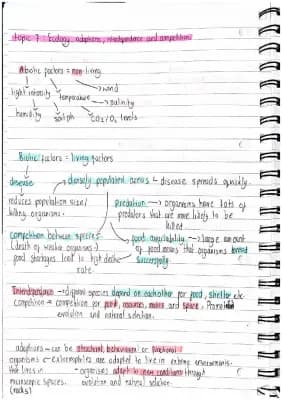 topic 7: Ecology adaptions, interdependence and competition
Abiotic factors = non living
light intensity temperature wind
salinity
humidity soil ph CO2/O2 levels
Biotic factors = living factors
disease densely populated areas disease spreads quickly.
reduces population size/ predation → organisms have lots of
killing organisms. predators that are more likely to be
killed
competition between species food availability → large amount
(death of weaker organisms) of food means that organisms breed
food shortages lead to high death successfully
rate
Interdependence → different species depend on each other for food, shelter etc
competition = competition for food, mates and space.
evolution and natural selection.
adaptions – can be structural, behavioural or functional
organisms extremophiles are adapted to live in extreme environments.
that lives in organisms adapt to new conditions through
microscopic spaces. evolution and natural selection.
(rocks)